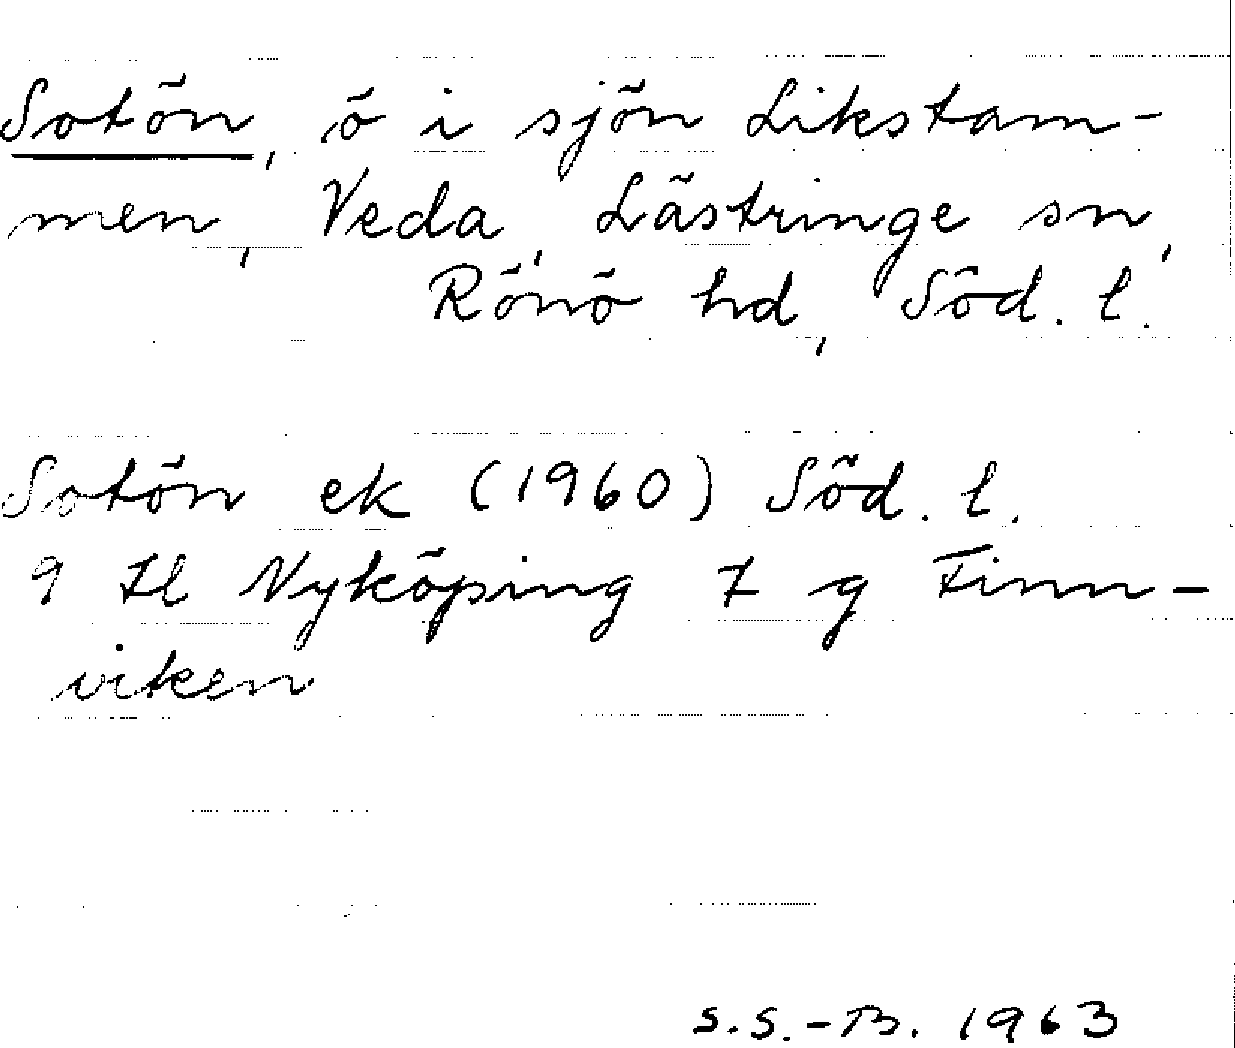 Sotön, ö i sjön Likstam-
men, Veda, Lästringe sn,
Rönö hd, Söd. l.
Sotön ek (1960) Söd. l.
9 Il Nyköping 7 g Finn-
viken
S.S.-B. 1963